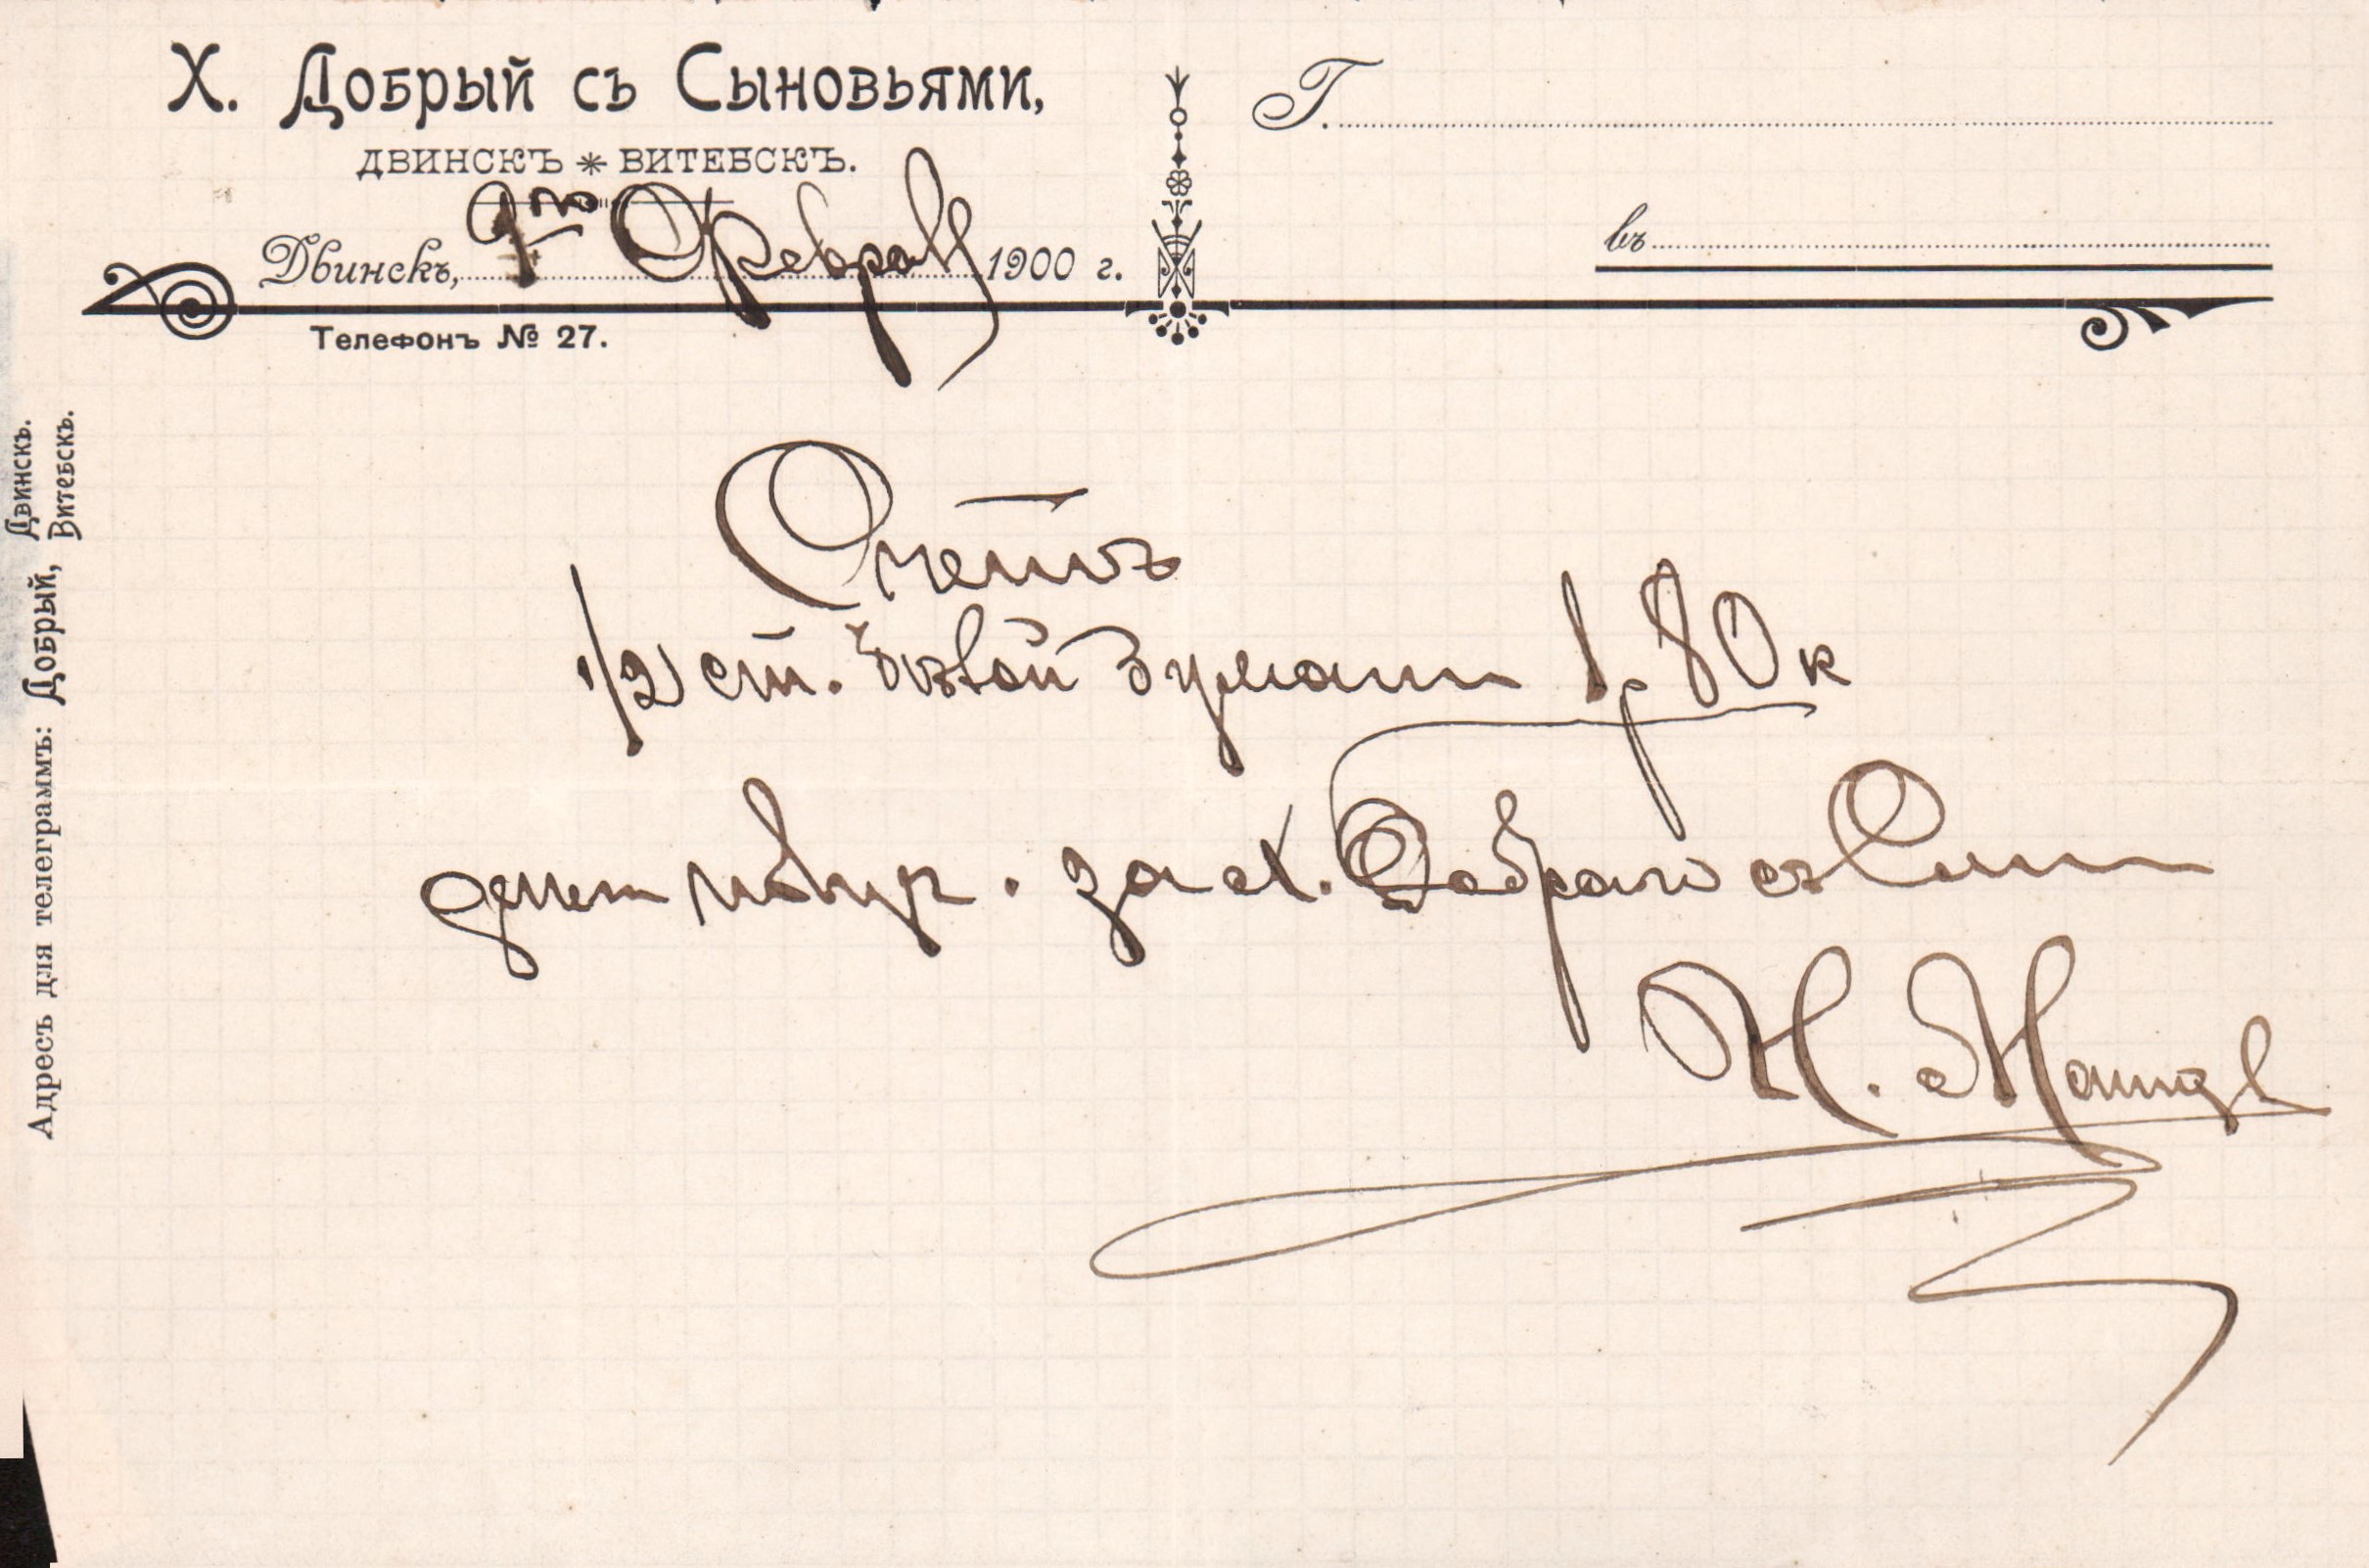 Х. Добрый съ Сыновьями,
ДВИНСКЪ * ВИТЕБСКЪ.
Двинскъ, 9го Февраля 1900 г.
Телефонъ № 27.
Г.
въ
Адресъ для телеграммъ: Добрый, Двинскъ. Витебскъ.
Счетъ
1/2 ст. бѣлой бумаги 1 р 80 к
за Х. Добраго съ С-ми
Н.